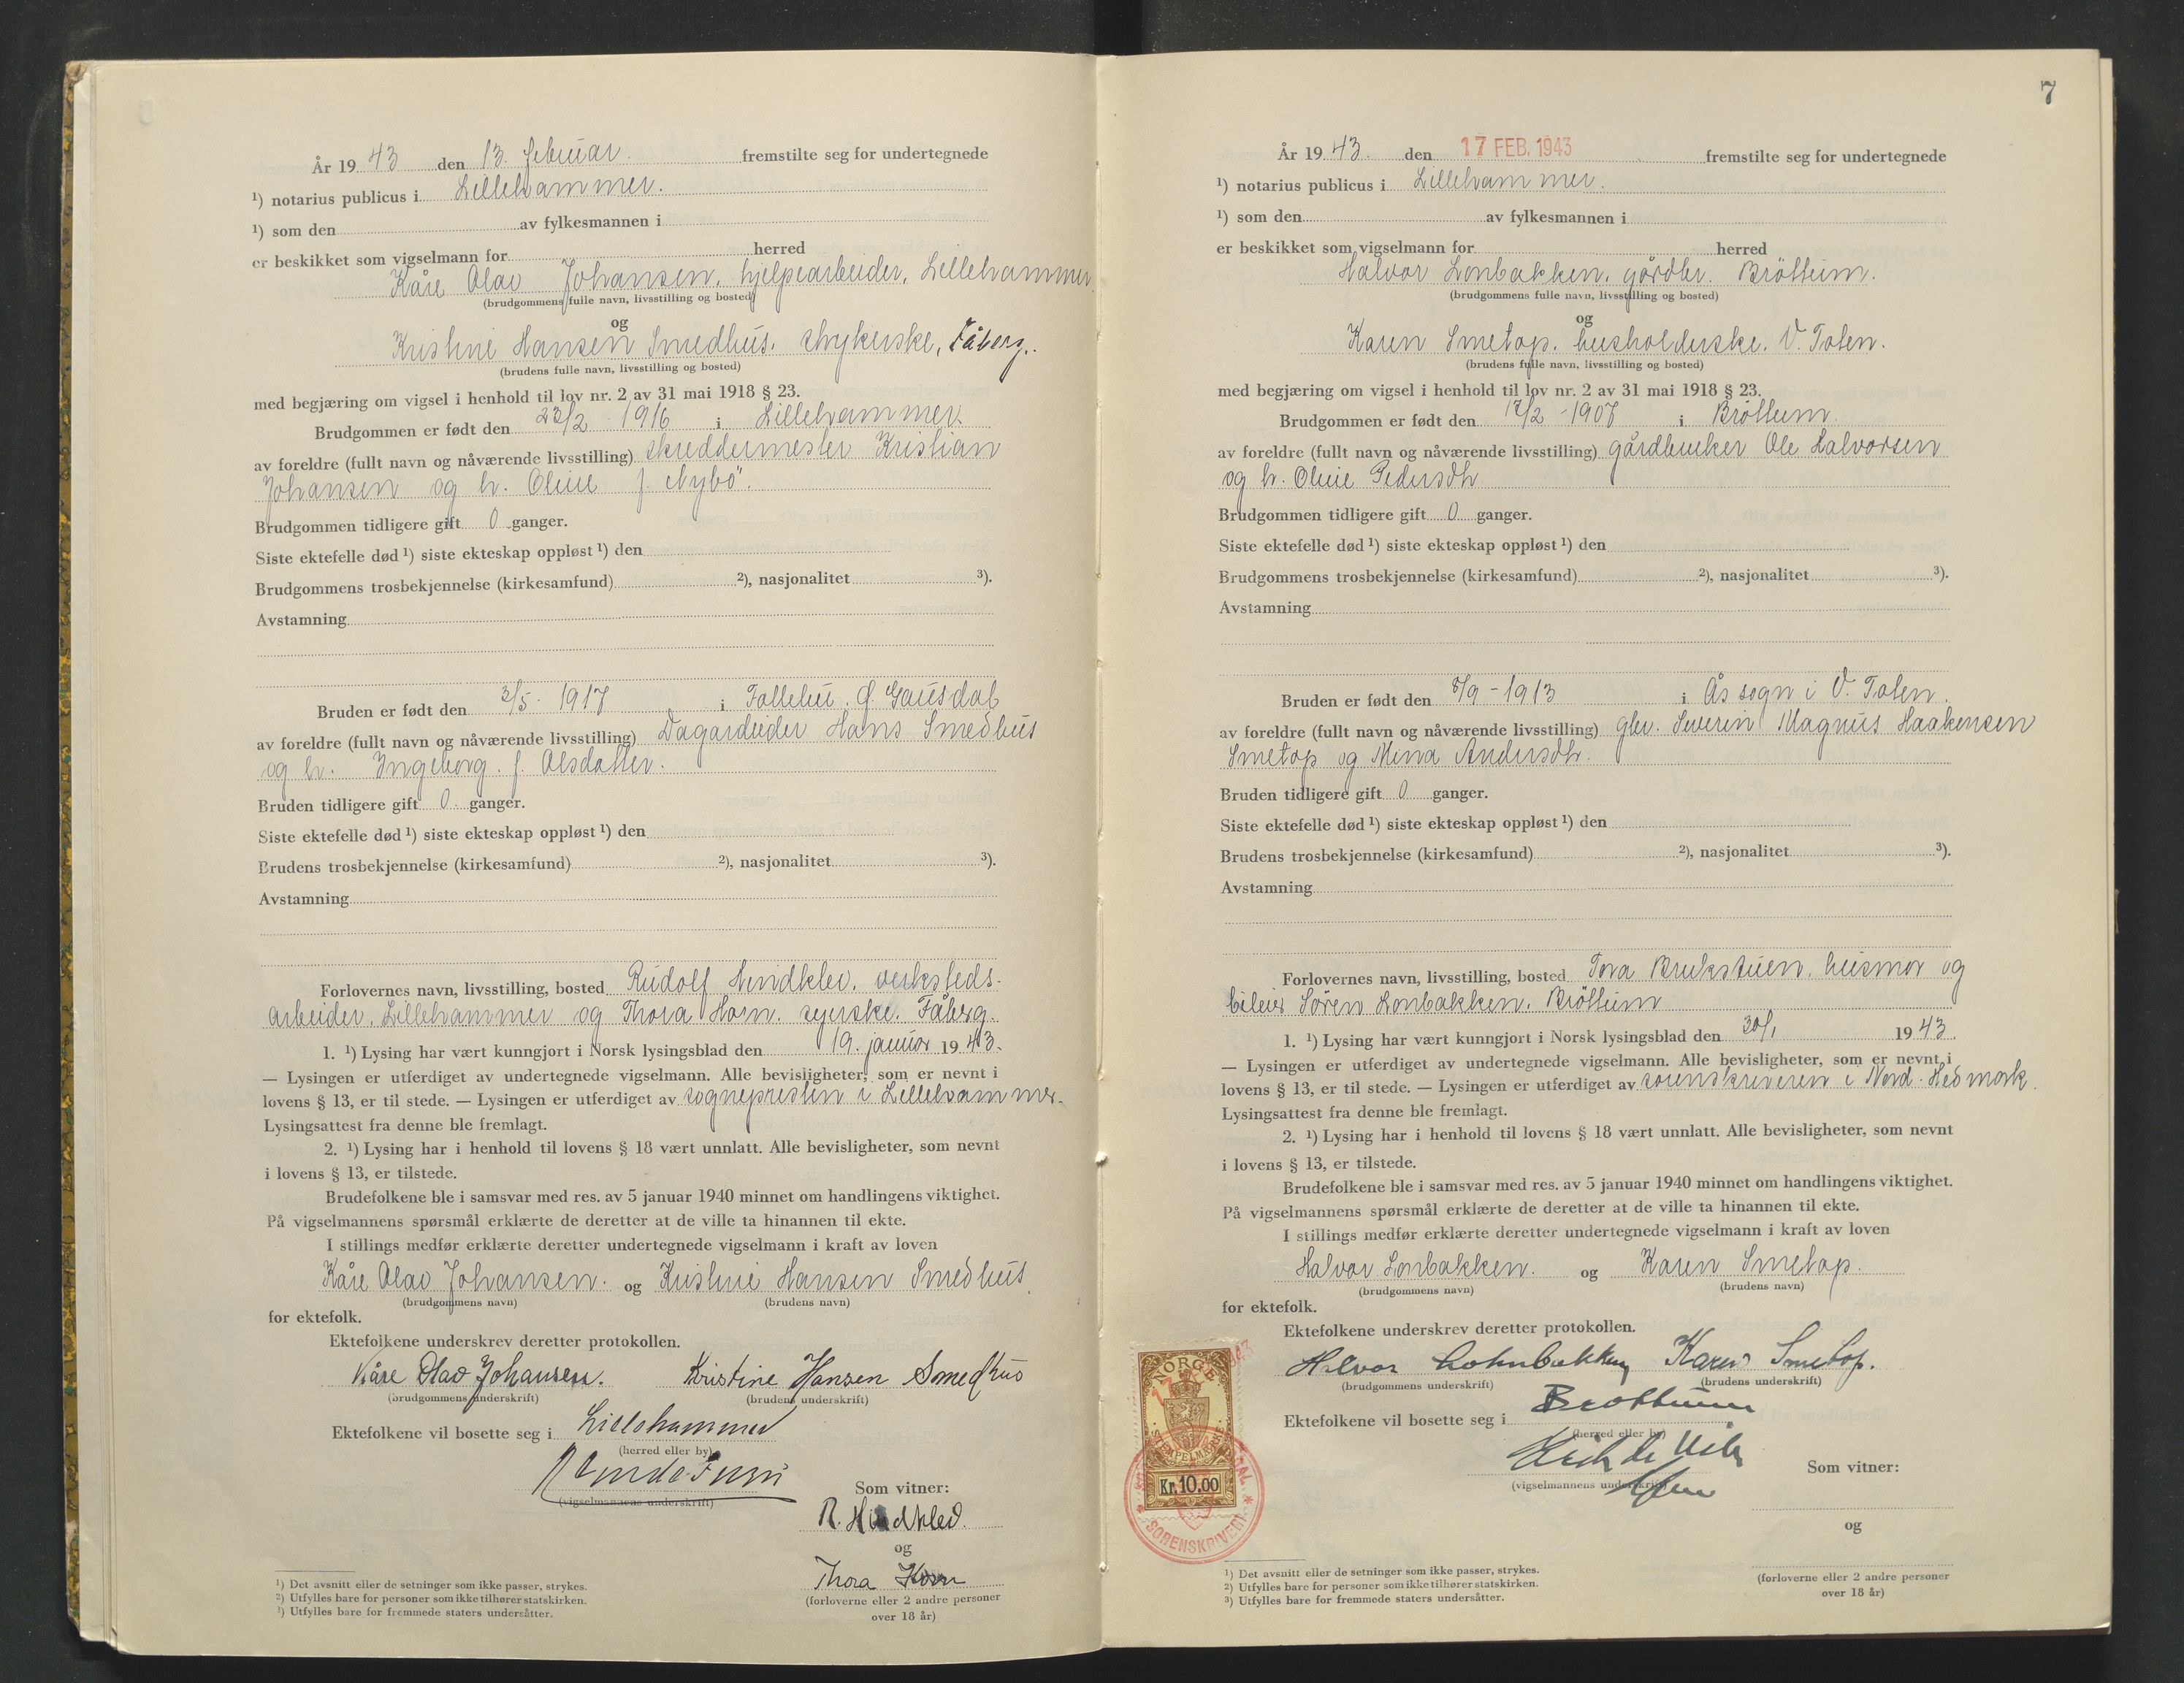 År 1943 den 13. februar. fremstilte seg for undertegnede
¹) notarius publicus i Lillehammer.
¹) som den av fylkesmannen i
er beskikket som vigselmann for herred
Kåre Olav Johansen, hjelpearbeider, Lillehammer
(brudgommens fulle navn, livsstilling og bosted)
og
Kristine Hansen Smedhus. strykerske, Fåberg.
(brudens fulle navn, livsstilling og bosted)
med begjæring om vigsel i henhold til lov nr. 2 av 31 mai 1918 § 23.
Brudgommen er født den 23/2 1916 i Lillehammer
av foreldre (fullt navn og nåværende livsstilling) skreddermester Kristian
Johansen og h. Oline f. Nybö.
Brudgommen tidligere gift 0 ganger.
Siste ektefelle død ¹) siste ekteskap oppløst ¹) den
Brudgommens trosbekjennelse (kirkesamfund) ²), nasjonalitet ³).
Avstamning
Bruden er født den 3/5 - 1917 i Follebu. Gausdal
av foreldre (fullt navn og nåværende livsstilling) Dagarbeider Hans Smedhus
og h. Ingeborg. f. Olsdatter.
Bruden tidligere gift 0. ganger.
Siste ektefelle død ¹) siste ekteskap oppløst ¹) den
Brudens trosbekjennelse (kirkesamfund) ²), nasjonalitet ³).
Avstamning
Forlovernes navn, livsstilling, bosted Rudolf Hindklev. verksteds-
arbeider, Lillehammer og Thora Horn. syerske. Fåberg.
1. ¹) Lysing har vært kunngjort i Norsk lysingsblad den 19. januar 1943.
— Lysingen er utferdiget av undertegnede vigselmann. Alle bevisligheter, som er nevnt i
lovens § 13, er til stede. — Lysingen er utferdiget av sognepresten i Lillehammer.
Lysingsattest fra denne ble fremlagt.
2. ¹) Lysing har i henhold til lovens § 18 vært unnlatt. Alle bevisligheter, som nevnt
i lovens § 13, er tilstede.
Brudefolkene ble i samsvar med res. av 5 januar 1940 minnet om handlingens viktighet.
På vigselmannens spørsmål erklærte de deretter at de ville ta hinannen til ekte.
I stillings medfør erklærte deretter undertegnede vigselmann i kraft av loven
Kåre Olav Johansen. og Kristine Hansen Smedhus
(brudgommens navn) (brudens navn)
for ektefolk.
Ektefolkene underskrev deretter protokollen.
Kåre Olav Johansen. Kristine Hansen Smedhus
(brudgommens underskrift) (brudens underskrift)
Ektefolkene vil bosette seg i Lillehammer
(herred eller by)
(vigselmannens underskrift)
Som vitner:
R. Hindklev.
og
Thora Horn
(forloverne eller 2 andre personer
over 18 år)
¹) Det avsnitt eller de setninger som ikke passer, strykes.
²) Utfylles bare for personer som ikke tilhører statskirken.
³) Utfylles bare for fremmede staters undersåtter.
7
År 1943. den 17 FEB. 1943 fremstilte seg for undertegnede
¹) notarius publicus i Lillehammer.
¹) som den av fylkesmannen i
er beskikket som vigselmann for herred
Halvor Lonbakken. gårdbr. Bröttum.
(brudgommens fulle navn, livsstilling og bosted)
og
Karen Smetop. husholderske. V. Toten.
(brudens fulle navn, livsstilling og bosted)
med begjæring om vigsel i henhold til lov nr. 2 av 31 mai 1918 § 23.
Brudgommen er født den 17/2 - 1907 i Bröttum.
av foreldre (fullt navn og nåværende livsstilling) gårdbruker Ole Halvorsen
og h. Oline Pedersdtr
Brudgommen tidligere gift 0 ganger.
Siste ektefelle død ¹) siste ekteskap oppløst ¹) den
Brudgommens trosbekjennelse (kirkesamfund) ²), nasjonalitet ³).
Avstamning
Bruden er født den 8/9 - 1913 i Ås sogn i V. Toten.
av foreldre (fullt navn og nåværende livsstilling) gbr. Severin Magnus Haakensen
Smetop og Mina Andersdtr.
Bruden tidligere gift 0 ganger.
Siste ektefelle død ¹) siste ekteskap oppløst ¹) den
Brudens trosbekjennelse (kirkesamfund) ²), nasjonalitet ³).
Avstamning
Forlovernes navn, livsstilling, bosted Tora husmor og
bileier Sören Lonbakken. Bröttum
1. ¹) Lysing har vært kunngjort i Norsk lysingsblad den 30/1 1943.
— Lysingen er utferdiget av undertegnede vigselmann. Alle bevisligheter, som er nevnt i
lovens § 13, er til stede. — Lysingen er utferdiget av sorenskriveren i Nord-Hedmark.
Lysingsattest fra denne ble fremlagt.
2. ¹) Lysing har i henhold til lovens § 18 vært unnlatt. Alle bevisligheter, som nevnt
i lovens § 13, er tilstede.
Brudefolkene ble i samsvar med res. av 5 januar 1940 minnet om handlingens viktighet.
På vigselmannens spørsmål erklærte de deretter at de ville ta hinannen til ekte.
I stillings medfør erklærte deretter undertegnede vigselmann i kraft av loven
Halvor Lonbakken. og Karen Smetop.
(brudgommens navn) (brudens navn)
for ektefolk.
Ektefolkene underskrev deretter protokollen.
Halvor Lohnbakken Karen Smetop.
(brudgommens underskrift) (brudens underskrift)
Ektefolkene vil bosette seg i Brøttum
(herred eller by)
(vigselmannens underskrift)
Som vitner:
og
(forloverne eller 2 andre personer
over 18 år)
NORGE
STEMPELMERKE
Kr. 10.00
SORENSKRIVEREN
¹) Det avsnitt eller de setninger som ikke passer, strykes.
²) Utfylles bare for personer som ikke tilhører statskirken.
³) Utfylles bare for fremmede staters undersåtter.